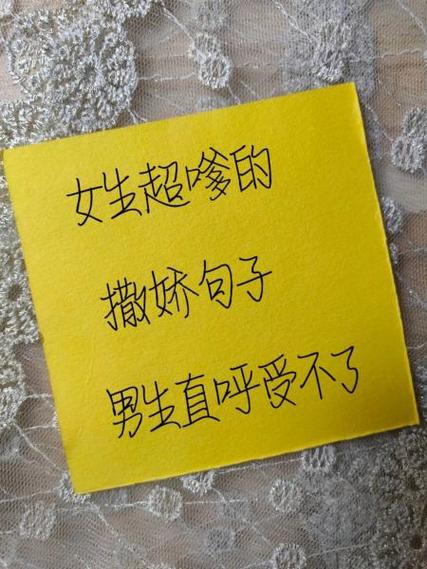 女生超嗲的
撒娇句子
男生直呼受不了